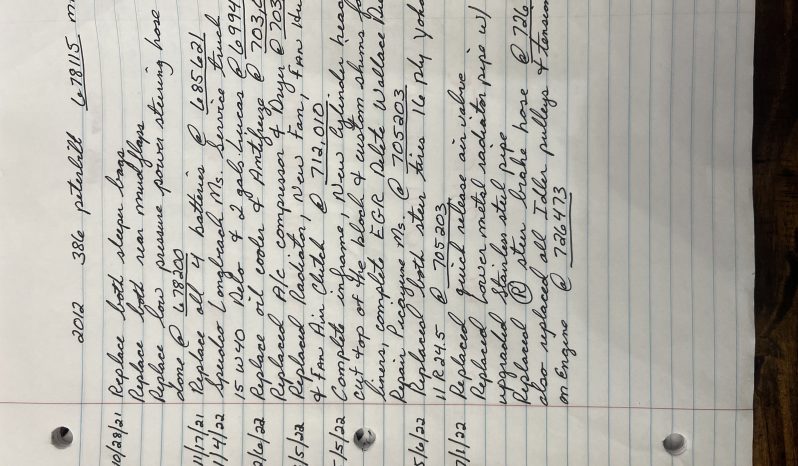 2012 386 peterbilt 678115 m
10/28/21 Replace both sleeper bags
Replace both rear mudflaps
Replace low pressure power steering hose
done @ 678200
11/17/21 Replace all 4 batteries @ 685621
1/4/22 Speedco Longbeach Ms. Service truck
15 W40 Delo & 2 gals Lucas @ 6994
2/6/22 Replace oil cooler & Antifreeze @ 703
Replaced A/c compressor & Dryer @ 703
/5/22 Replaced Radiator, New Fan, Fan Hu
& Fan Air Clutch @ 712,010
-/5/22 Complete inframe, New cylinder head
cut top of the block & custom shims f
liners, complete EGR Delete Wallace
Repair Picayune Ms. @ 705203
5/6/22 Replaced both steer tires 16 ply
11 R 24.5 @ 705203
7/1/22 Replaced quick release air valve
Replaced Lower metal radiator pipe w/
upgraded Stainless steel pipe
Replaced (R) steer brake hose @ 726
also replaced all Idler pulleys & tension
on Engine @ 726473